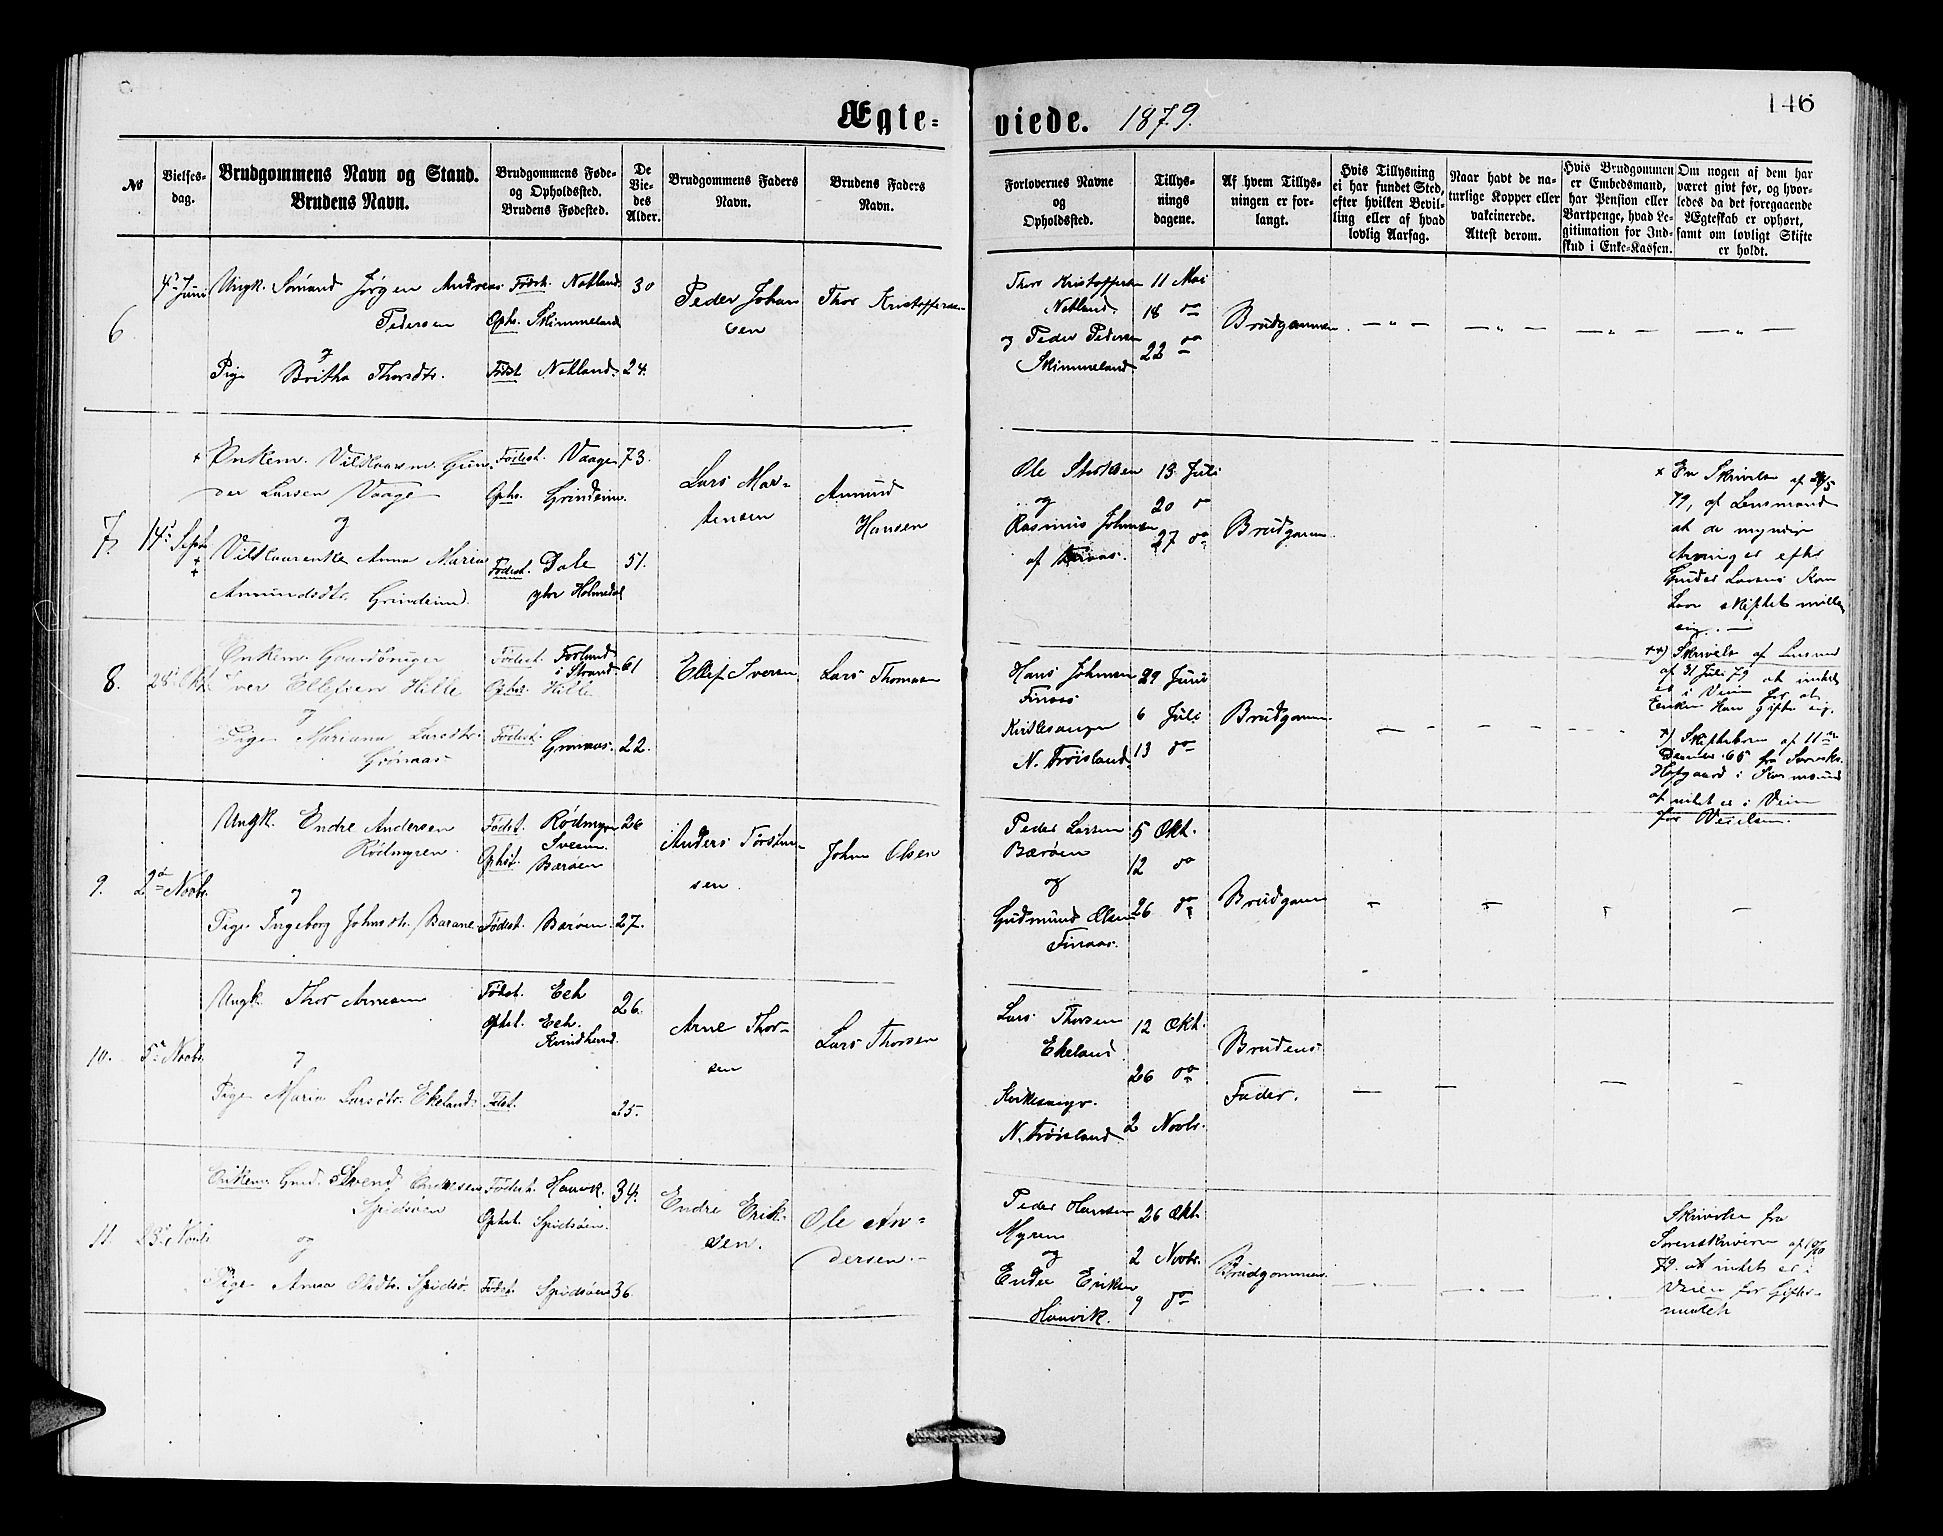 146
Ægte-
viede. 1879.
No
Vielses-
dag.
Brudgommens Navn og Stand.
Brudens Navn.
Brudgommens Føde-
og Opholdssted.
Brudens Fødested.
De
Vie-
des
Alder.
Brudgommens Faders
Navn.
Brudens Faders
Navn.
Forlovernes Navne
og
Opholdssted.
Tillys-
nings
dagene.
Af hvem Tillys-
ningen er for-
langt.
Hvis Tillysning
ei har fundet Sted,
efter hvilken Bevil-
ling eller af hvad
lovlig Aarsag.
Naar havt de na-
turlige Kopper eller
vakcinerede.
Attest derom.
Hvis Brudgommen
er Embedsmand,
har Pension eller
Vartpenge, hvad Le-
gitimation for Ind-
skud i Enke-Kassen.
Om nogen af dem har
været givt før, og hvor-
ledes da det foregaaende
Ægteskab er ophørt,
samt om lovligt Skifte
er holdt.
6
4de Juni
Ungk. Sømand Jørgen Andreas
Pedersen
og
Pige Britha Thorsdtr.
Fødst. Notland
Ophs. Skimmeland
Fødst. Notland
30
24.
Peder Johan
sen
Thor Kristoffersen
Thor Kristoffersen
Notland
og Peder Pedersen
Skimmeland
11 Mai
18 do
22 do
Brudgommen
7.
14de Septr
Enkem. Vilkaarsm. Gun
der Larsen Vaage
og
Vilkaarenke Anna Maria
Amundsdtr. Grindeim
Fødest. Vaage
Ophs. Grindeim.
Fødest. Dale
ytre Holmedal
73.
51.
Lars Mor-
tensen
Amund
Hansen
Ole Storksen
og
Rasmus Johnsen
af Finaas.
13 Juli
20 do
27 do
Brudgomm.
x En Skrivelse af
79, af Lensmand
at de myndige
Arvinger efter
Gunder Larsens Kone
Lov skiftet mellem
sig.
8.
28de Okt.
Enkem. Gaardbruger
Iver Ellefsen Hille
og
Pige Mariana Larsdtr.
Gjønaas
Fødest. Forland
i Strand
Ophs. Hille
Fødest. Gjønaas.
61
22.
Ellef Iversen
Lars Thomsen
Hans Johnsen
Finaas
Kirkesanger
N. Trøisland.
29 Juni
6 Juli
13 do
Brudgomm.
xx) Skrivelse af Lensmd
af 31 Juli 79 at intet
er i Veien for at
Enken kan gifte sig.
x) Skiftebrev af 11te
Decmber 65 fra Sorensk.
Hofgaard i Karmsund
at intet er i Veien
for Vielsen.
9.
2den Novbr.
Ungk. Endre Andersen
Rødmyren.
og
Pige Ingeborg Johnsdtr. Barane
Fødst. Rødmyren
Sveen
Ophst. Barøen
Fødest. Barøen
26
27.
Anders Torsten-
sen.
John Olsen
Peder Larsen
Bærøen
og
Gudmund Olsen
Finaas.
5 Okt.
12 do
26 do
Brudgomm
10.
5te Novbr.
Ungk. Thor Arnesen
og
Pige Maria Larsdtr. Ekeland
Fødst. Eeh
Ophst. Eeh.
Kvindherred.
Fødst.
26.
25.
Arne Thor-
sen
Lars Thorsen
Lars Thorsen
Ekeland
Kirkesanger.
N. Trøisland
12 Okt.
26 do
2 Novbr.
Brudens
Fader.
11.
23de Novbr
Enkem. Gmd. Svend Endresen
Spidsøen
og
Pige Anna Olsdtr. Spidsø.
Fødest. Hauvik.
Ophst. Spidsøen.
Fødst. Spidsøen
34.
36.
Endre Erik-
sen.
Ole An-
dersen.
Peder Hansen
Myren
og
Endre Eriksen
Hauvik.
26 Okt.
2 Novbr.
9 do
Brudgommen
Skrivelse fra
Sorenskriveren af 10/10
79. at intet er i
Veien for Gifter-
maalet